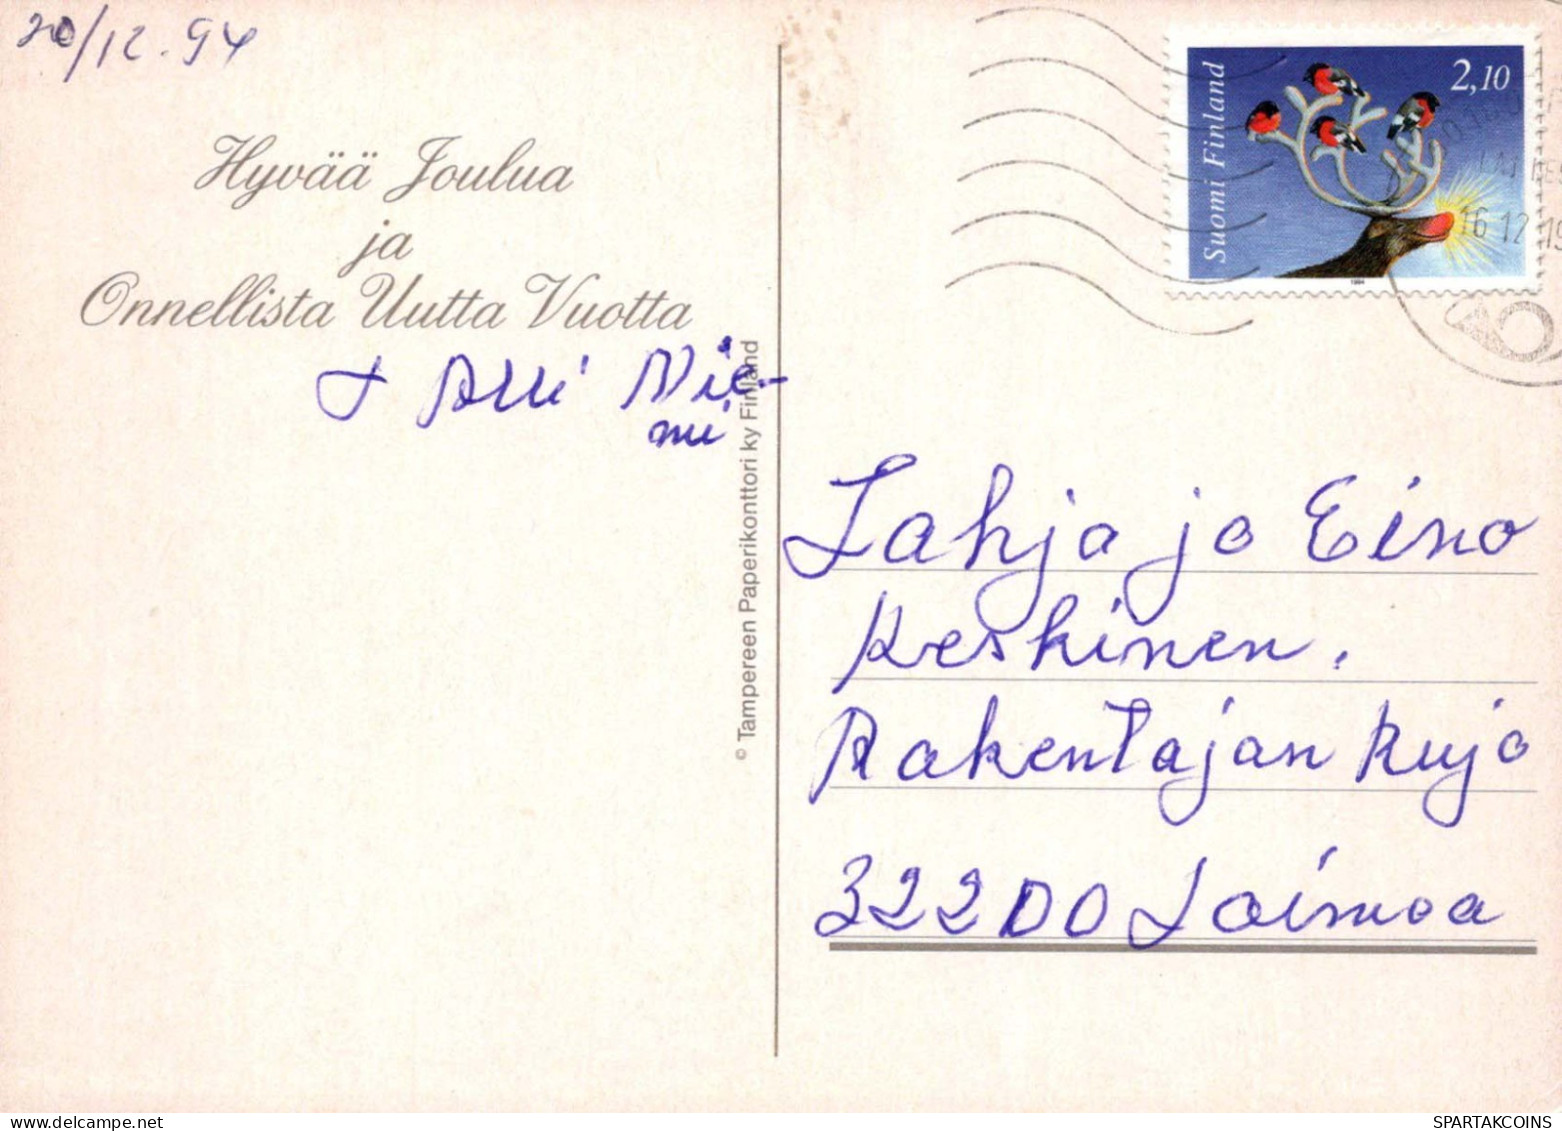 20/12.94
Hyvää Joulua
ja
Onnellista Uutta Vuotta
Alli Nie-
mi
© Tampereen Paperikonttori ky Finland
Suomi Finland
2,10
1994
16 12 19
Lahja ja Eino
Keskinen.
Rakentajan kujo
32200 Loimoa
SPARTAKCOINS